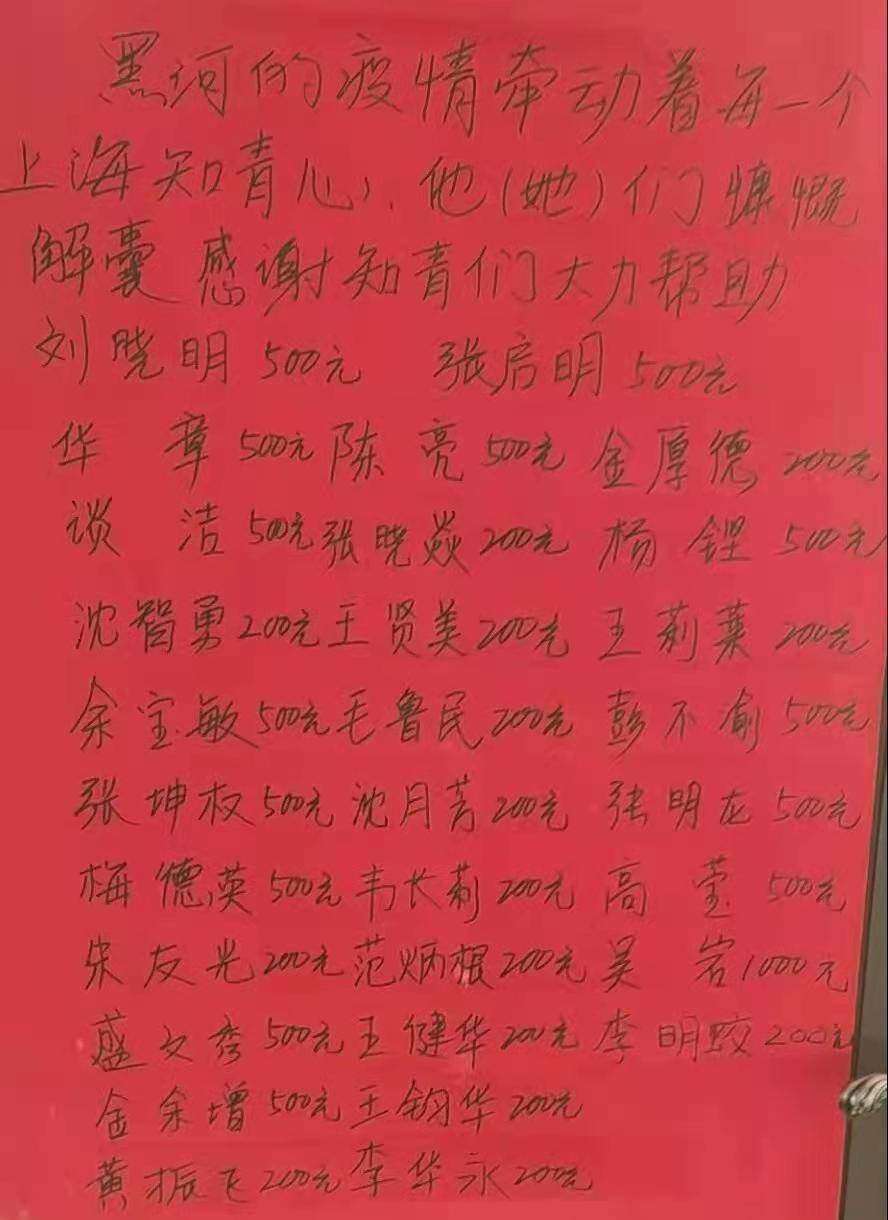 黑河的疫情牵动着每一个
上海知青心，他(她)们慷慨
解囊 感谢知青们大力帮助
刘晓明500元 张启明500元
华章500元 陈亮500元 金厚德200元
谈洁500元 张晓焱200元 杨铿500元
沈智勇200元 王贤美200元 王莉叶200元
余宝敏500元 毛鲁民200元 彭不渝500元
张坤权500元 沈月芳200元 张明龙500元
梅德英500元 韦长莉200元 高莹500元
朱友光200元 范炳根200元 吴岩1000元
盛文秀500元 王健华200元 李明蛟200元
金余增500元 王钧华200元
黄振飞200元 李华永200元